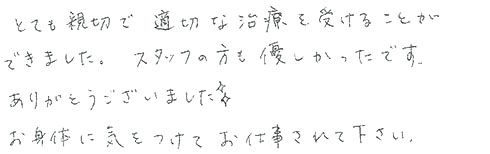 とても親切で 適切な治療を受けることが
できました。 スタッフの方も優しかったです。
ありがとうございました☆
お身体に気をつけてお仕事されて下さい。